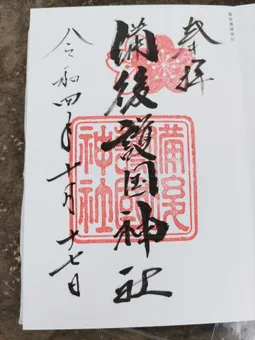 奉拝
備後護国神社
令和四年十一月十七日
備後護国神社